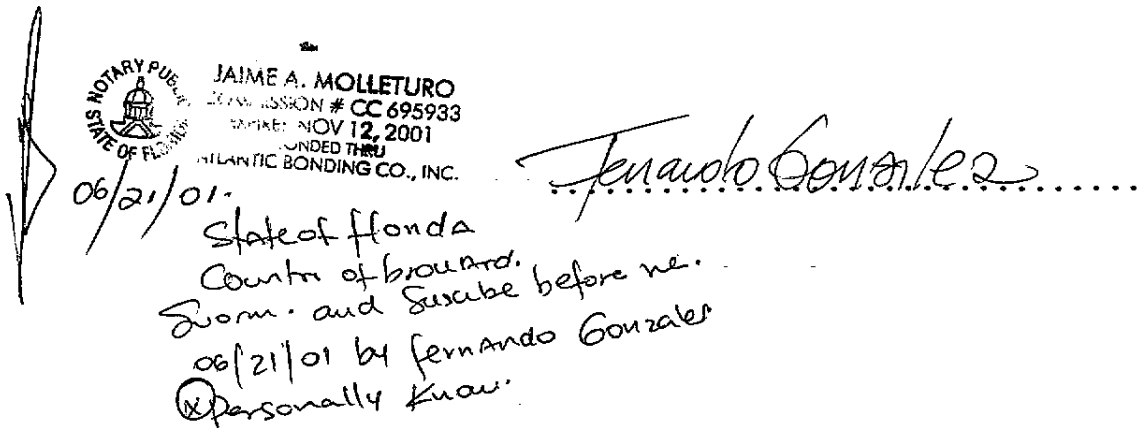 NOTARY PUBLIC
STATE OF FLORIDA
JAIME A. MOLLETURO
COMMISSION # CC 695933
EXPIRES NOV 12, 2001
BONDED THRU
ATLANTIC BONDING CO., INC.
Fernando Gonzalez
06/21/01.
State of Florida
Countr of broward.
Sworn. and Suscibe before me.
06/21/01 by fernando Gonzalez
(x) personally Know.